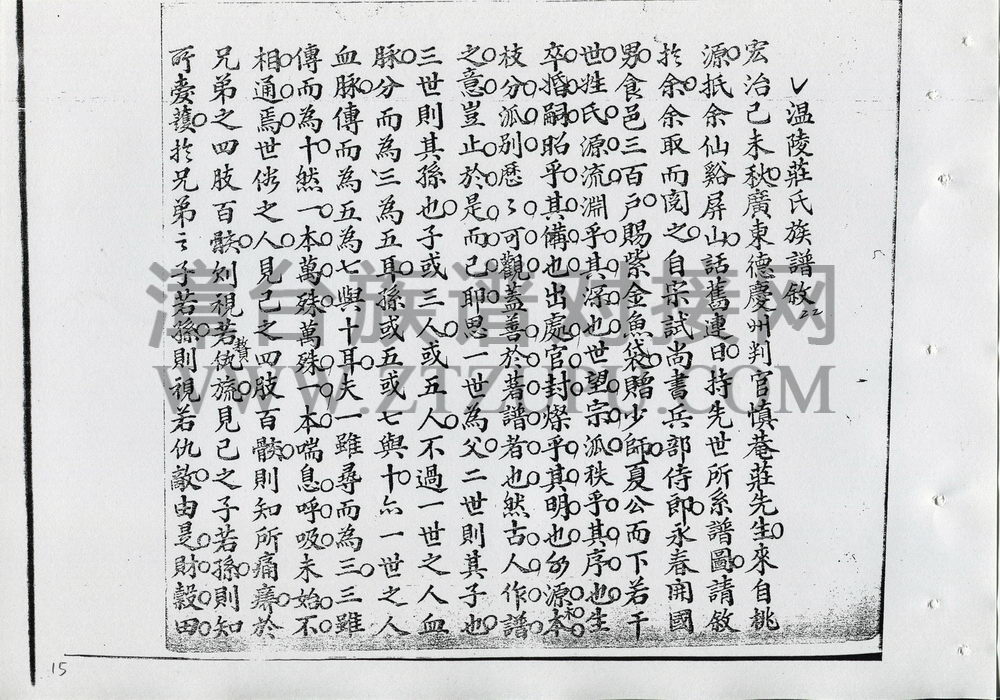 温陵莊氏族譜敘
22
宏治己未秋廣東德慶州判官慎菴莊先生來自桃
源抵余仙谿屏山話舊連日持先世所系譜圖請敘
於余余取而閱之自宗試尚書兵部侍郎永春開國
男食邑三百户賜紫金魚袋贈少師夏公而下若干
世姓氏源流淵乎其深也世望宗派秩乎其序也生
卒婚嗣昭乎其備也出處官封燦乎其明也源本
和
枝分派别歷〻可觀蓋善於著譜者也然古人作譜
之意豈止於是而已耶思一世為父二世則其子也
三世則其孫也子或三人或五人不過一世之人血
脉分而為三為五耳孫或五或七與十亦一世之人
血脉傳而為五為七與十耳夫一雖尋而為三三雖
傳而為十然一本萬殊萬殊一本喘息呼吸未始不
相通焉世俗之人見己之四肢百骸則知所痛癢於
兄弟之四肢百骸則視若疣見己之子若孫則知
贅
所愛護於兄弟之子若孫則視若仇敵由是財穀田
15
漳台族谱对接网
WWW.ZTZUPU.COM